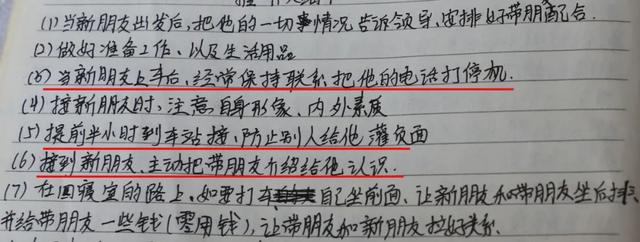 (1)当新朋友出发后,把他的一切事情况告诉领导,安排好带朋配合.
(2)做好准备工作、以及生活用品
(3)当新朋友上车后,经常保持联系把他的电话打停机.
(4)接新朋友时、注意自身形象、内外素质
(5)提前半小时到车站接,防止别人给他灌负面
(6)接到新朋友、主动把带朋友介绍给他认识.
(7)在回寝室的路上、如要打车自己坐前面、让新朋友和带朋友坐后排、
并给带朋友一些钱(零用钱),让带朋友和新朋友拉好关系.